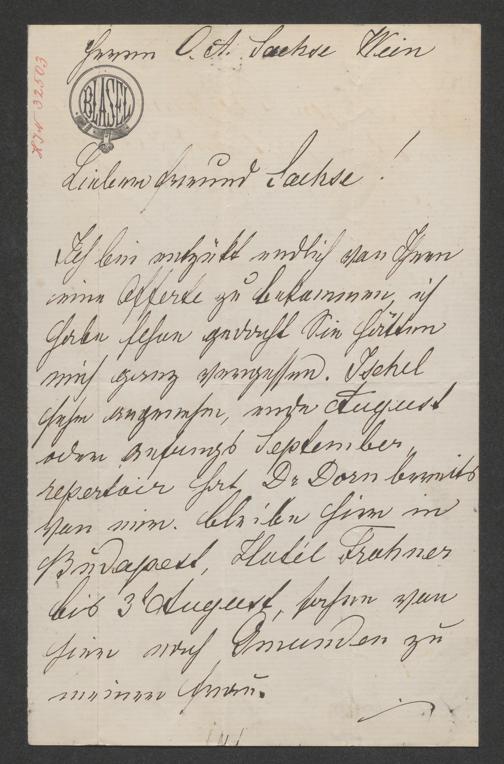 Herrn O. A. Sachse Wien
BLASEL
H.I.N. 32503
Lieber Freund Sachse!
Ich bin entzükt endlich von Ihnen
eine Offerte zu bekommen, ich
habe schon gedacht Sie hätten
mich ganz vergessen. Ischel
sehr angenehm, ende August
oder anfangs September,
repertoir hat Dr Dorn bereits
von mir. bleibe hier in
Budapest, Hotel Frohner
bis 3t August, fahre von
hier nach Gmunden zu
meiner Frau.